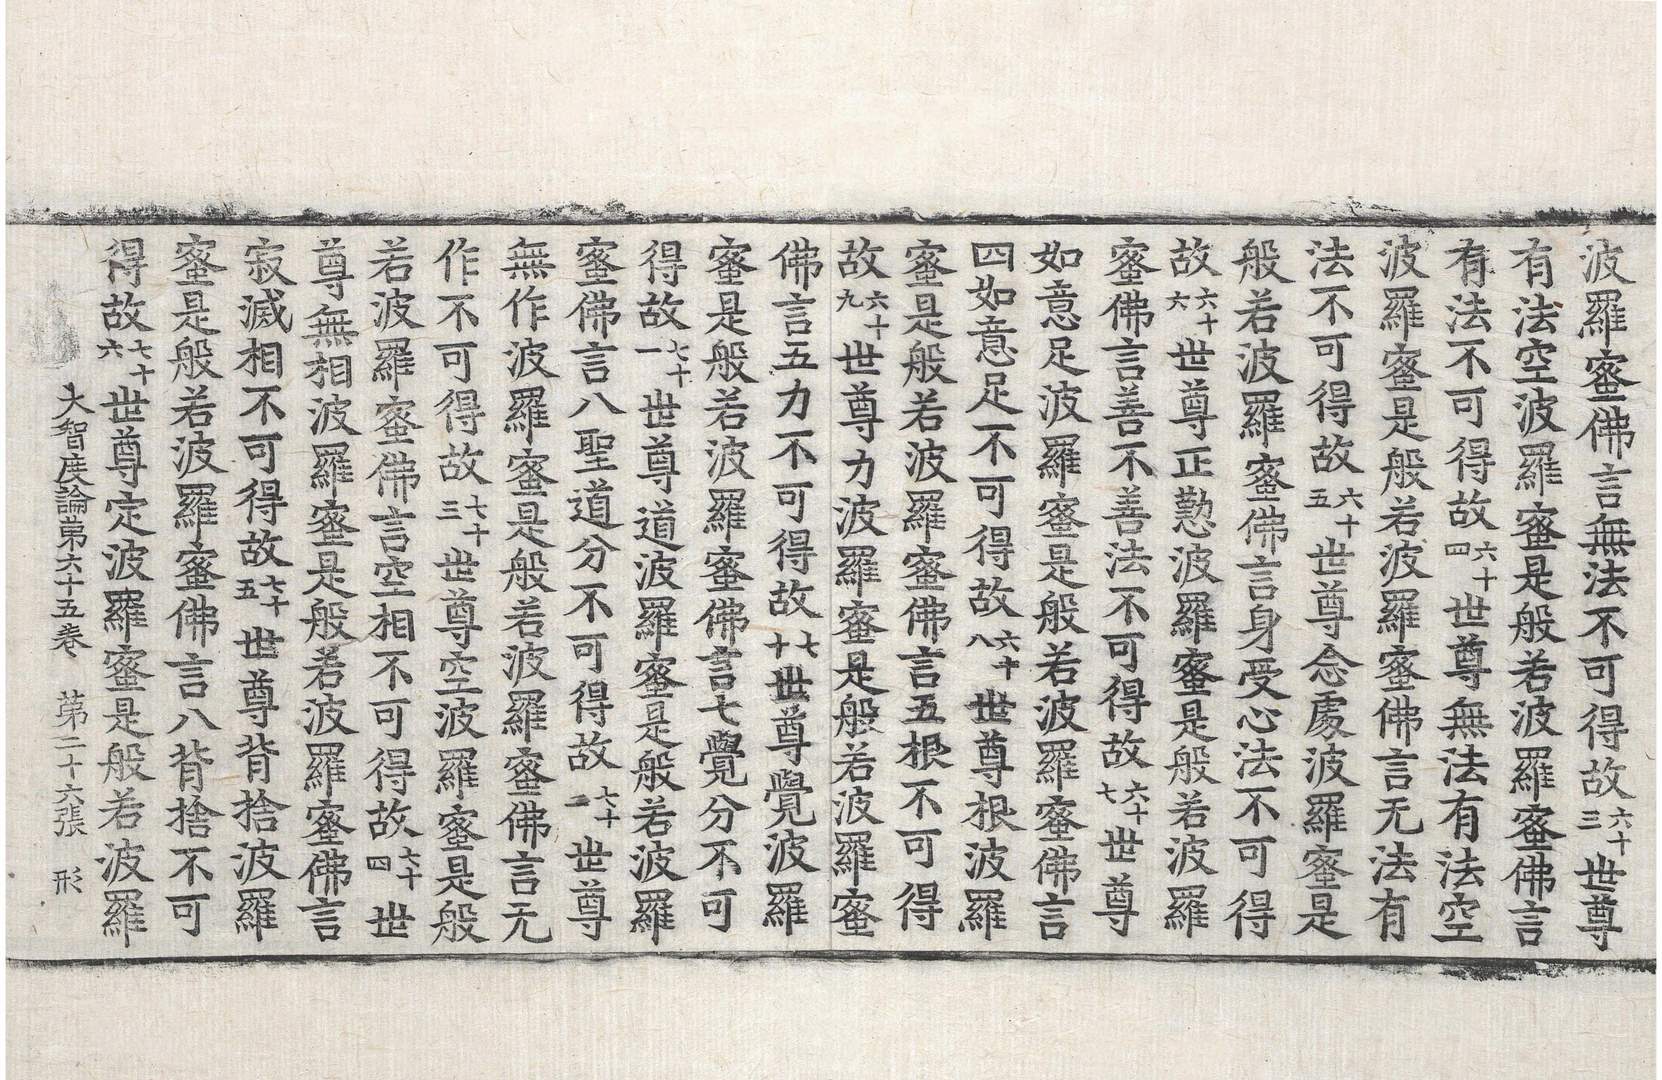 波羅蜜佛言無法不可得故六十三世尊
有法空波羅蜜是般若波羅蜜佛言
有法不可得故六十四世尊無法有法空
波羅蜜是般若波羅蜜佛言无法有
法不可得故六十五世尊念處波羅蜜是
般若波羅蜜佛言身受心法不可得
故六十六世尊正懃波羅蜜是般若波羅
蜜佛言善不善法不可得故六十七世尊
如意足波羅蜜是般若波羅蜜佛言
四如意足不可得故六十八世尊根波羅
蜜是般若波羅蜜佛言五根不可得
故六十九世尊力波羅蜜是般若波羅蜜
佛言五力不可得故七十世尊覺波羅
蜜是般若波羅蜜佛言七覺分不可
得故七十一世尊道波羅蜜是般若波羅
蜜佛言八聖道分不可得故七十二世尊
無作波羅蜜是般若波羅蜜佛言无
作不可得故七十三世尊空波羅蜜是般
若波羅蜜佛言空相不可得故七十四世
尊無相波羅蜜是般若波羅蜜佛言
寂滅相不可得故七十五世尊背捨波羅
蜜是般若波羅蜜佛言八背捨不可
得故七十六世尊定波羅蜜是般若波羅
大智度論第六十五卷 第二十六張 形